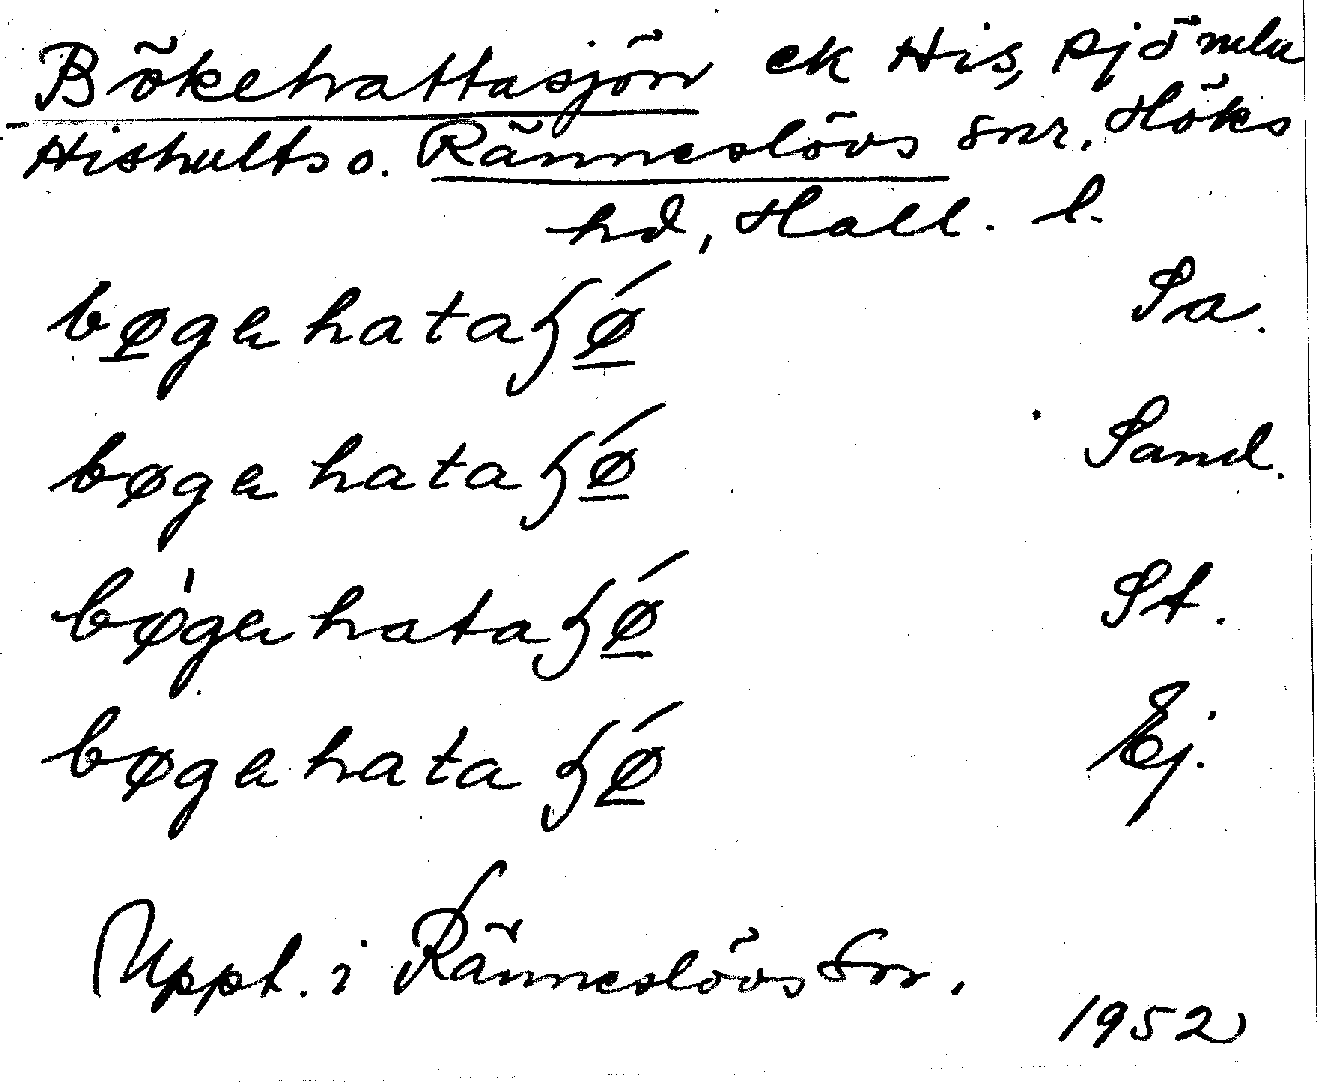 Bökehattasjön ek His, Pjömlu
Hishults o. Ränneslövs snr. Höks
hd, Hall. l.
bøgahataʒø Sa.
bøgahataʒø Sand.
bø'gahataʒø St.
bøgahataʒø Ej.
Uppt. i Ränneslövs sn.
1952